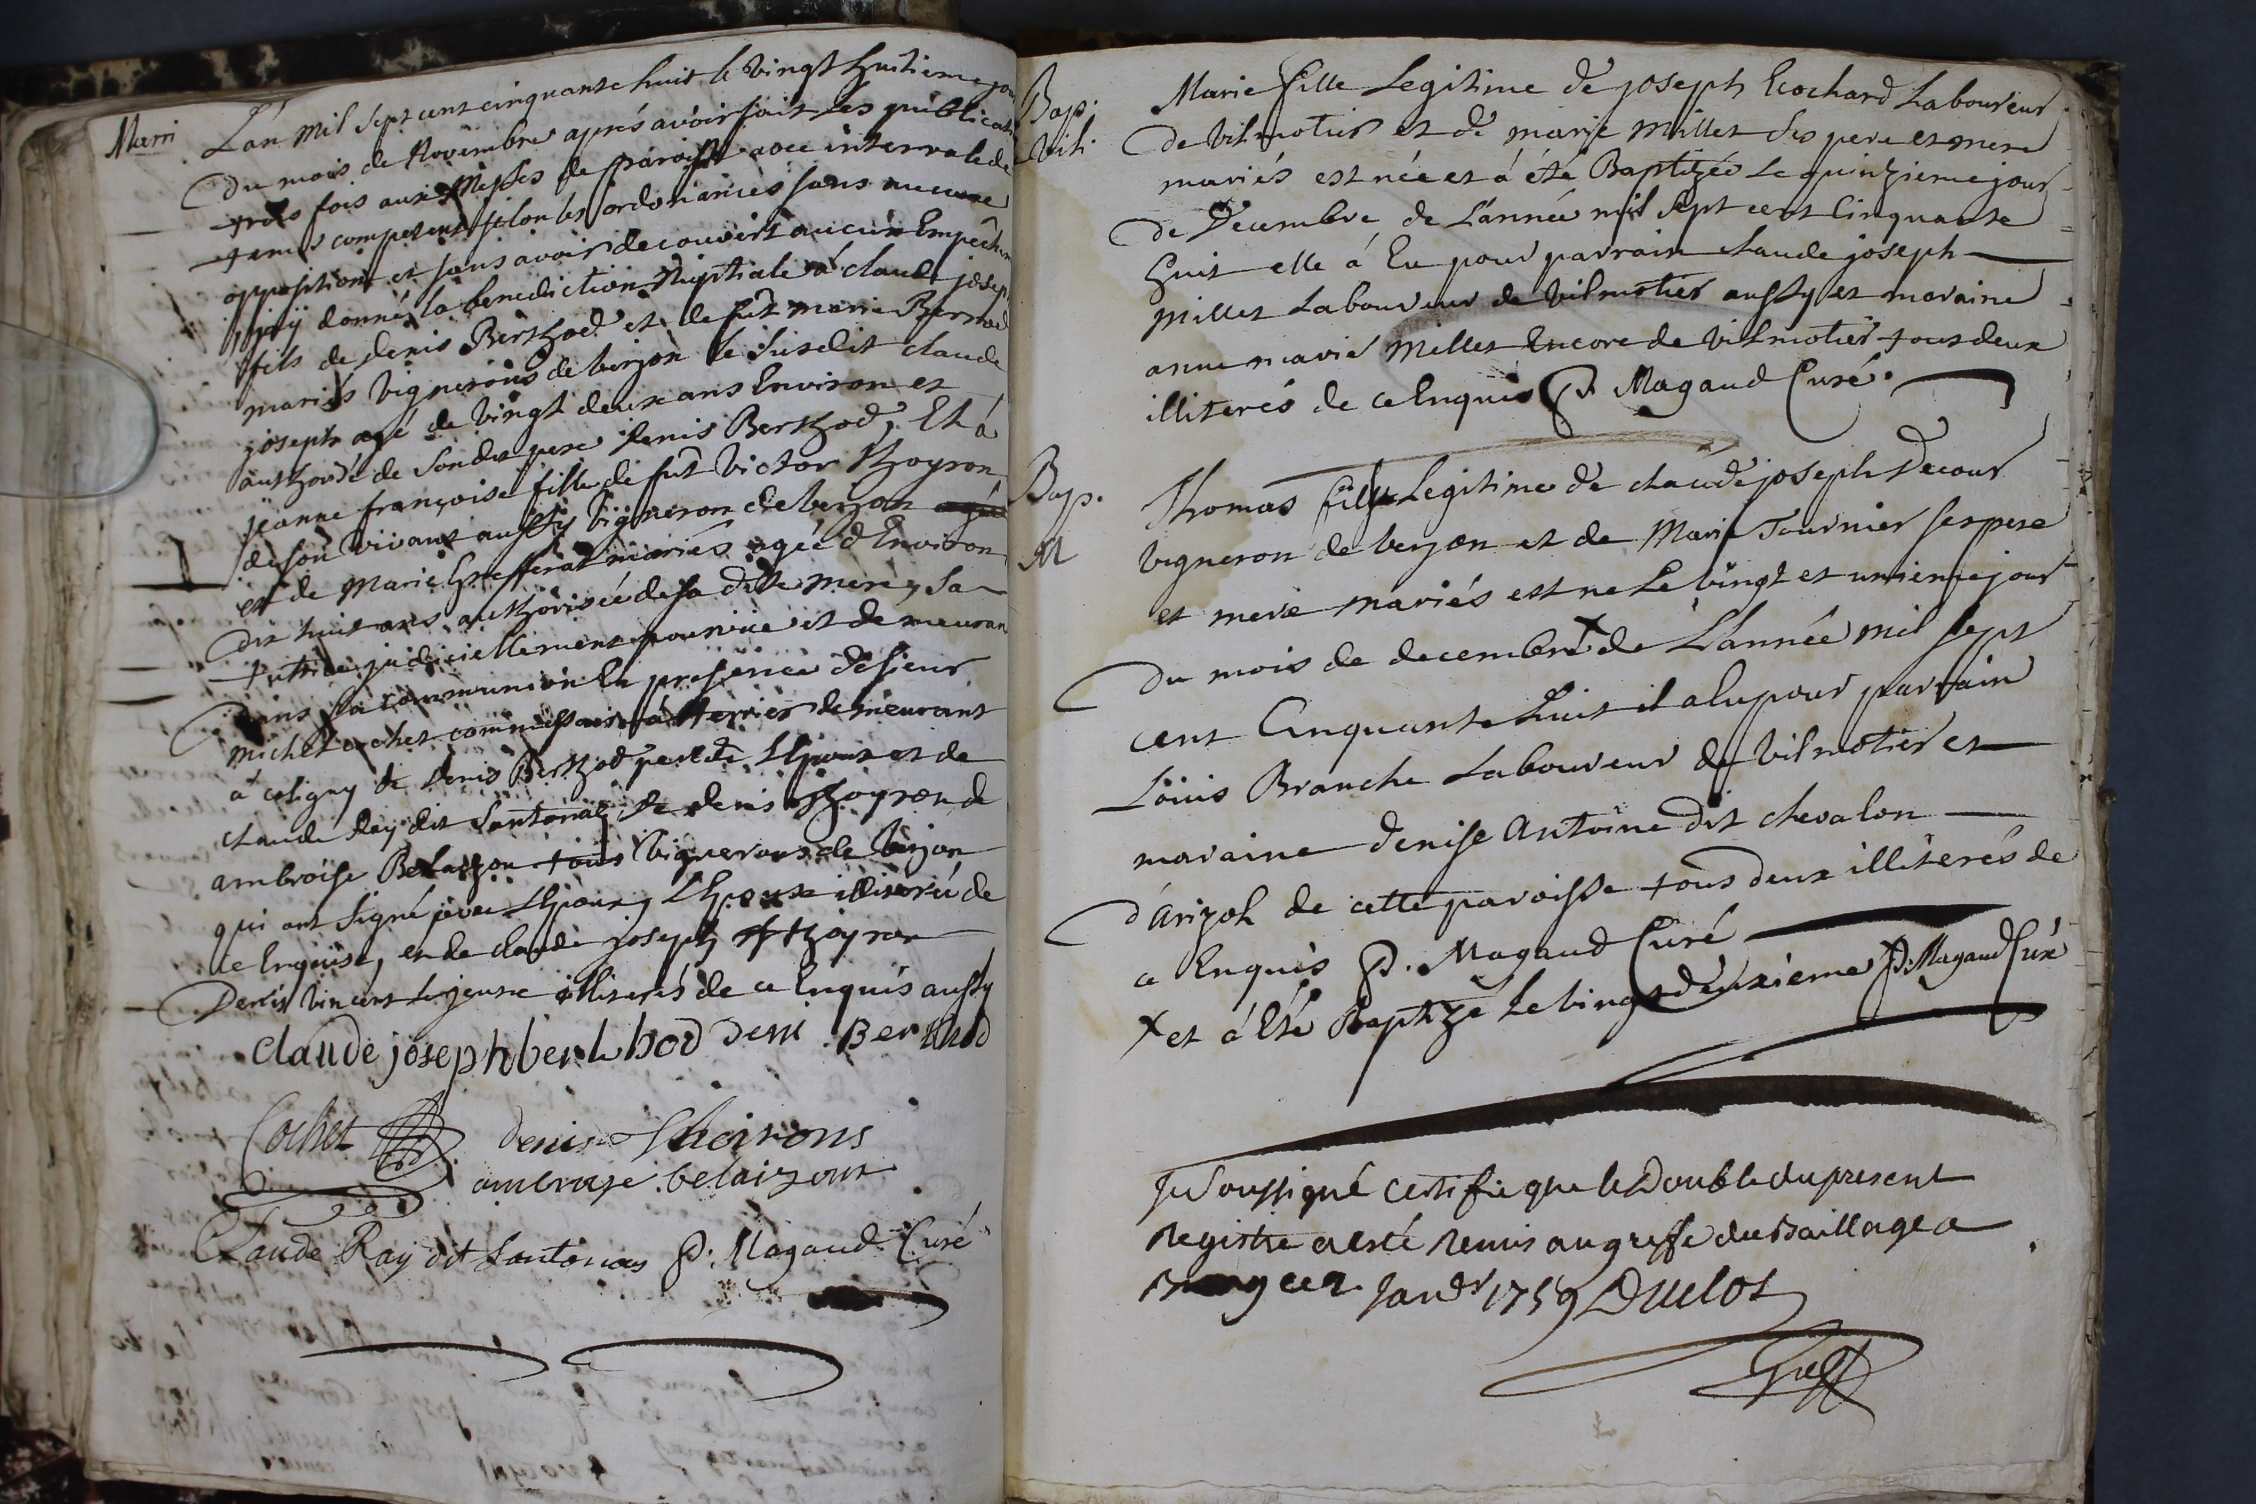 Marri
L'an mil sept cent cinquante huit le vingt huitieme jou
du mois de Novembre aprés avoir fait les publicati
trois fois aux Messes de paroisse avec intervale de
tems competent selon les ordonances sans aucune
opposition et sans avoir decouvert aucun Empêchem
j'ay donné la benediction Nuptiale á claude josep
fils de denis Berthod et de fut marie Bernod
mariés vignerons de verjon le susdit claude
joseph agé de vingt deux ans Environ et
authorisé de son dit pere denis Berthod, Et á
jeanne françoise fille de fut victor Thoyron
de son vivant aussy vigneron de verjon
et de Marie mariés agée d'Environ
dix huit ans authorisée de sa ditte mere, sa
tutrice judiciellement pourvüe et demeuran
dans sa communion En presence de sieur
michel cochet commissaire á terrier demeurant
á coligny de denis Berthod pere de l'Epoux et de
claude Ray dit Santonas de denis Thoyron de
ambroise Belaizon tous vignerons de verjon
qui ont signé avec l'Epoux, l'Epouse illiterée de
ce Enquise, et de claude joseph Thoyron
Denis vincent le jeune illiterés de ce Enquis aussy
claude joseph berthod Deni Berthod
Cochet denis Thoirons
ambroise belaizont
Claude Ray dit Santonas P. Magaud Curé
Bap.
Vil.
Marie fille Legitime de joseph Ecochard Laboureur
de Vilmotier et de marie Millet ses pere et mere
mariés est née et á été Baptizée Le quinzieme jour
de Decembre de L'année mil sept cent Cinquante
huit elle á Eu pour parrain claude joseph
Millet Laboureur de Vilmotier aussy et maraine
anne marie Millet Encore de Vilmotier tous deux
illiterés de ce Enquis P. Magaud Curé.
Bap.
M
Thomas fils Legitime de claude joseph Decour
vigneron de verjon et de Marie Tournier ses pere
et mere mariés est ne Le vingt et unieme jour
du mois de decembre x de L'année mil sept
cent Cinquante huit il a Eu pour parrain
Loüis Branche Laboureur de Vilmotier et
maraine denise Antoine dit chevalon
d'arizol de cette paroisse tous deux illiterés de
ce Enquis P. Magaud Curé
x et á Eté Baptizé Le vingt deuxieme P. Magaud Curé
Je Soussigné certifie que le Double du present
Registre a esté remis au greffe du Baillage a
ce 2 Janvr 1759 Duclos
Greff